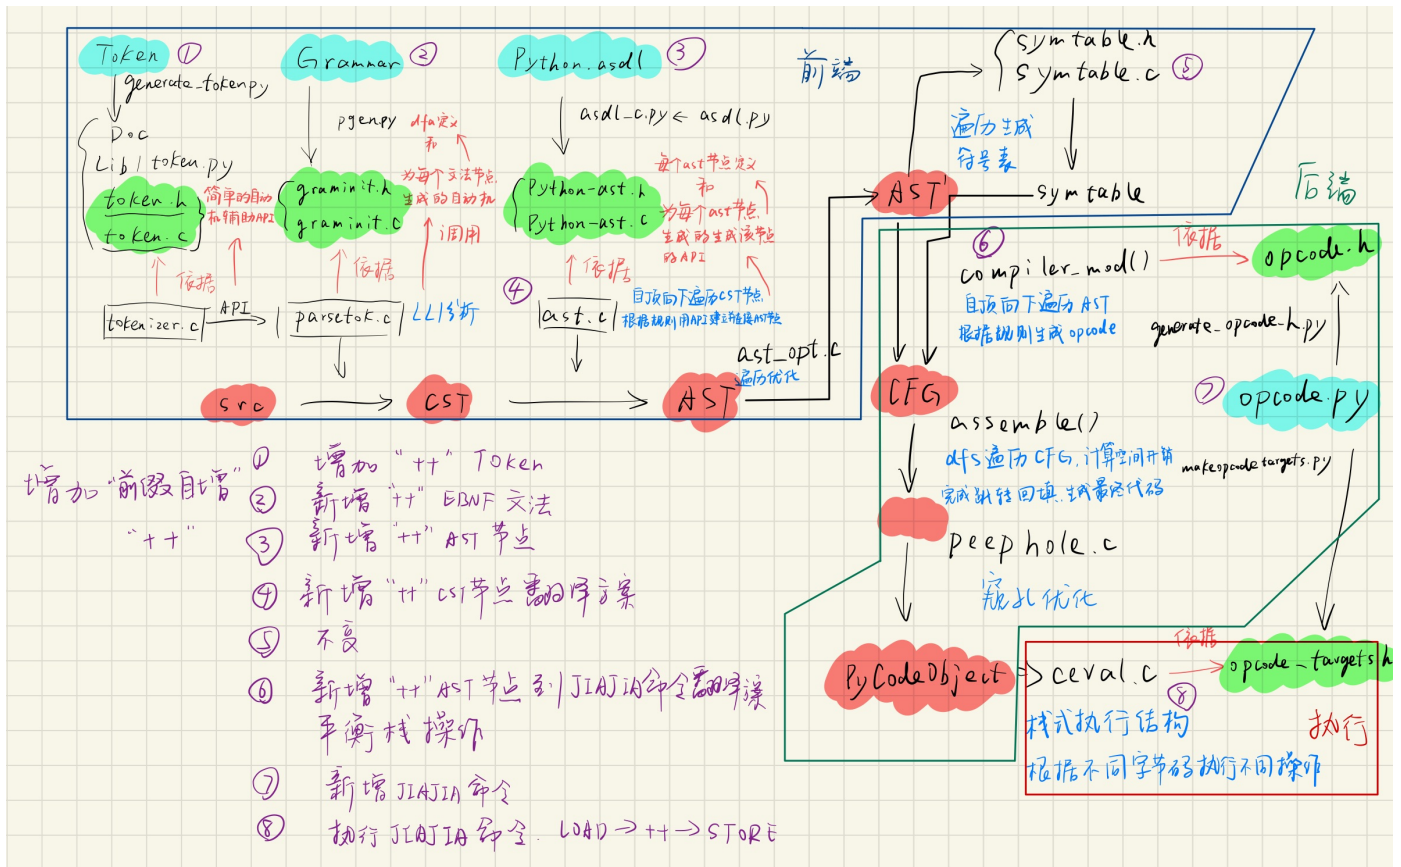 Token ①
generate_token.py
Doc
Lib / token.py
token.h
token.c
简单的自动
机辅助API
依据
tokenizer.c
API
Grammar ②
pgen.py
dfa定义
和
为每个文法节点
生成的自动机
graminit.h
graminit.c
调用
依据
parsetok.c
LL1分析
Python.asdl ③
asdl_c.py ← asdl.py
每个ast节点定义
和
为每个ast节点
生成的生成该节点
的API
Python-ast.h
Python-ast.c
依据
④
ast.c
自顶向下遍历CST节点
根据规则用API建立并链接AST节点
src
CST
AST
ast_opt.c
遍历优化
前端
symtable.h
symtable.c ⑤
遍历生成
符号表
AST'
symtable
后端
⑥
compiler_mod()
依据
opcode.h
自顶向下遍历 AST
根据规则生成 opcode
generate_opcode_h.py
CFG
⑦
opcode.py
assemble()
dfs遍历 CFG, 计算空间开销
完成跳转回填, 生成最终代码
makeopcodetargets.py
peephole.c
窥孔优化
PyCodeObject
ceval.c
依据
opcode_targets.h
⑧
栈式执行结构
执行
根据不同字节码执行不同操作
增加 "前缀自增"
"++"
① 增加 "++" Token
② 新增 "++" EBNF 文法
③ 新增 "++" AST 节点
④ 新增 "++" CST 节点翻译方案
⑤ 不变
⑥ 新增 "++" AST 节点到 JIAJIA 命令翻译方案
平衡栈操作
⑦ 新增 JIAJIA 命令
⑧ 执行 JIAJIA 命令. LOAD → ++ → STORE